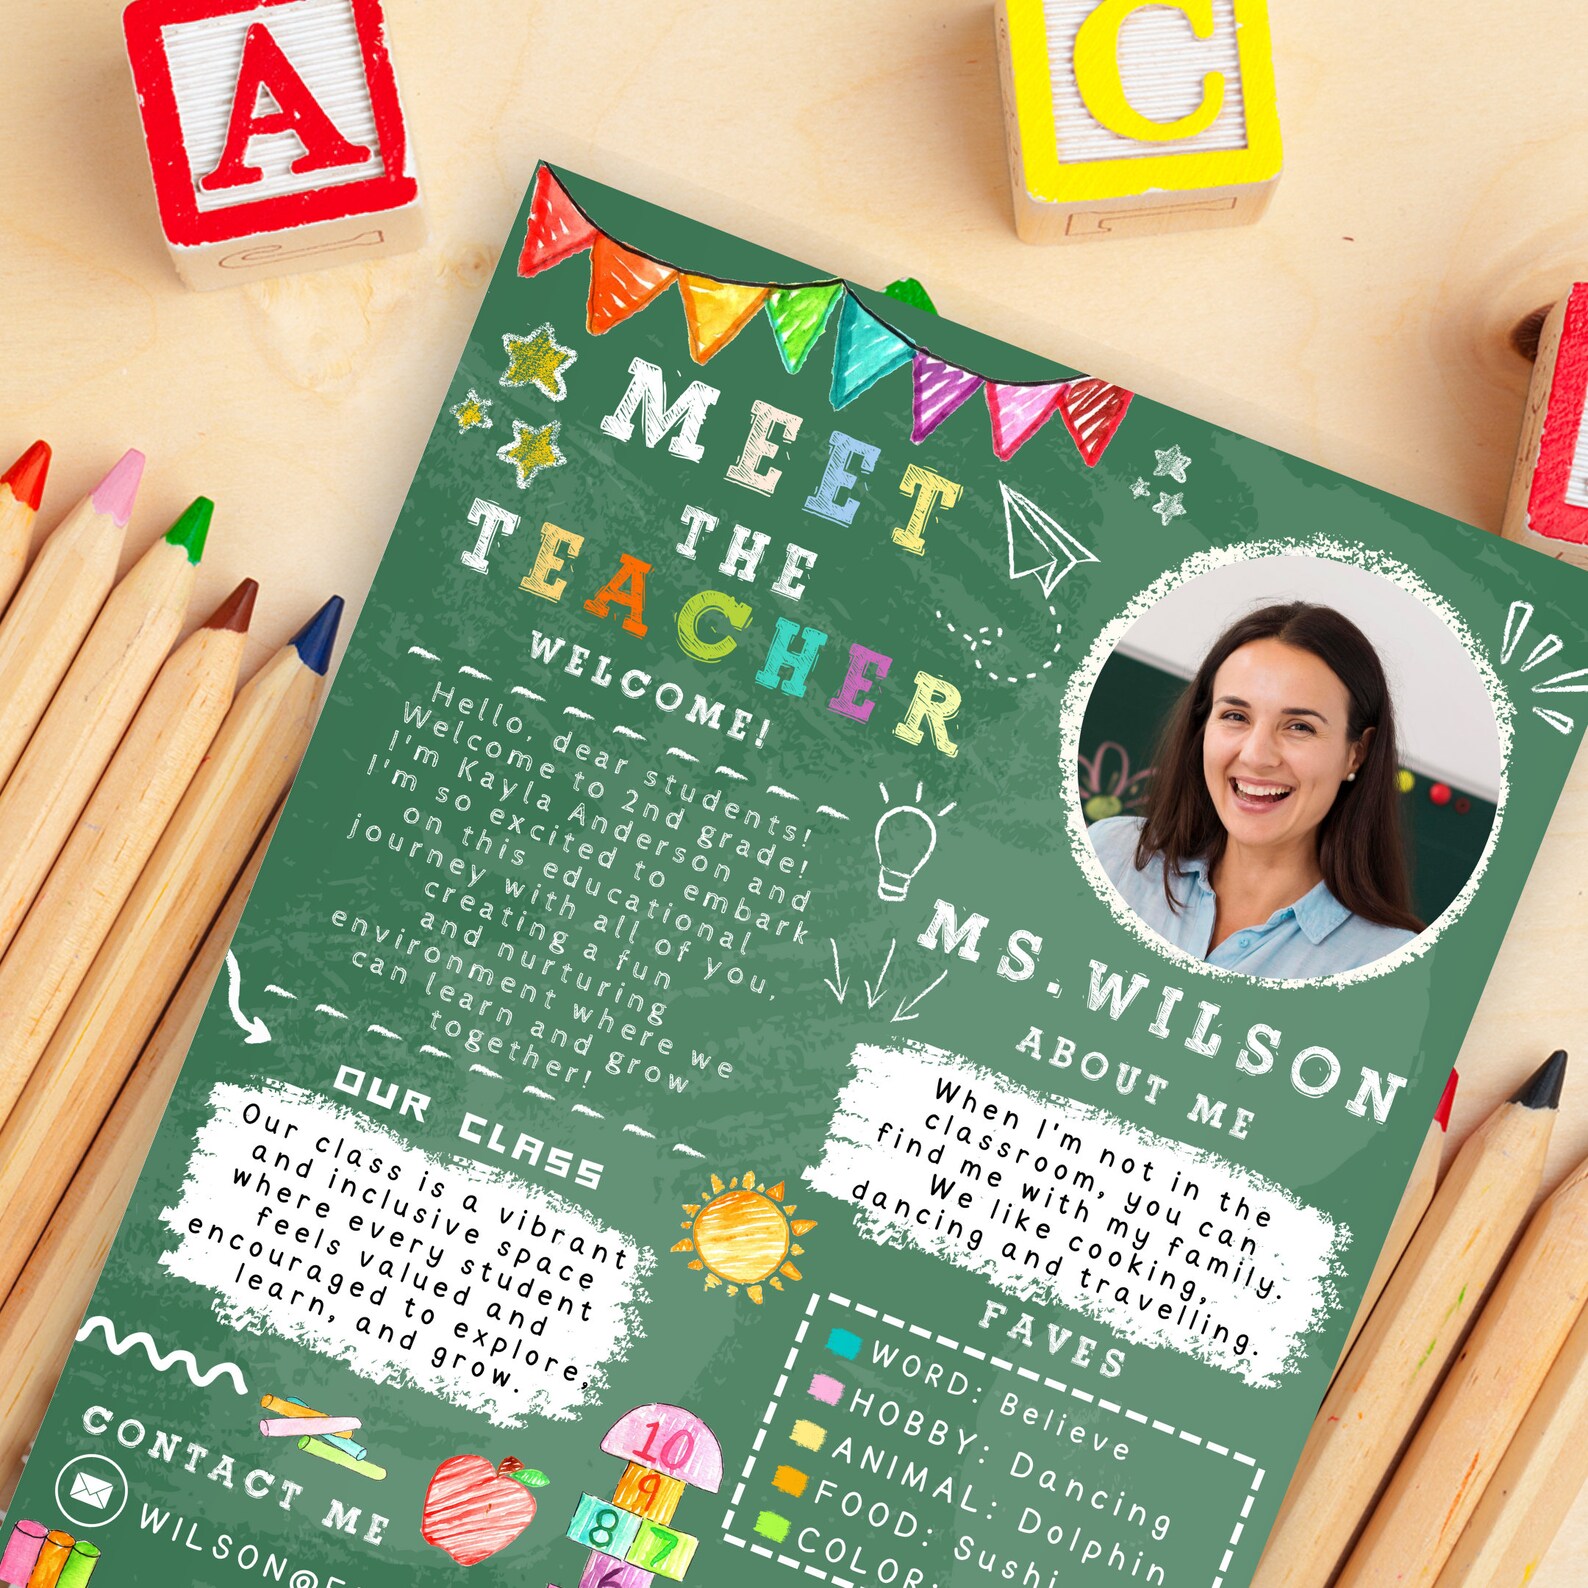 A
C
MEET
THE
TEACHER
WELCOME!
Hello, dear students!
Welcome to 2nd grade!
I'm Kayla Anderson and
I'm so excited to embark
on this educational
journey with all of you,
creating a fun
and nurturing
environment where we
can learn and grow
together!
OUR CLASS
Our class is a vibrant
and inclusive space
where every student
feels valued and
encouraged to explore,
learn, and grow.
CONTACT ME
WILSON@
MS. WILSON
ABOUT ME
When I'm not in the
classroom, you can
find me with my family.
We like cooking,
dancing and travelling.
FAVES
WORD: Believe
HOBBY: Dancing
ANIMAL: Dolphin
FOOD: Sushi
COLOR:
10
9
8 7